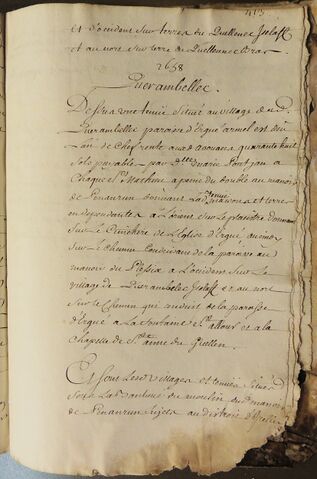 413
et d'occident sur terres du Quellenec Iselaff
et au nort sur terre du Quellennec Bras
2658
Querambellec.
Dessus une tenüe Situé au village dud.
Querambellec paroisse d'Ergué armel est deu
L'an de Cheffrente aud. domaine quarante huit
Sols payable par dlle marie
Chaque St. Mathieu a peine du double au manoir
de Penanrun donnant Lad. tenüe maisons et terre
en dependantes a L'orient Sur le placitre donnant
Sur le Cimittiere de L'Eglise d'Ergué au midy
Sur le Chemin Conduisant de la paroisse au
manoir du Plessix a L'occident Sur Le
village de Querambellec Iselaff et au nort
Sur le Chemin qui conduit de la paroisse
d'Ergué a La fontaine St. allour et a la
Chapelle de Ste. anne du Guellen.
Et sont Les villages et tenües Situés
Sous La banlieue du moulin du manoir
de Penanrun Sujets au distroit d'Icelluy